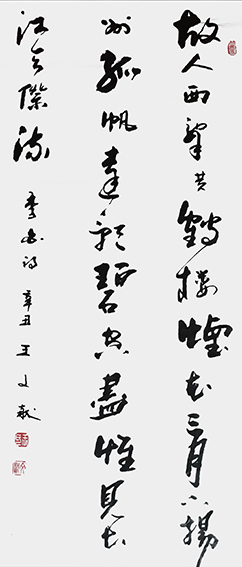 故人西辭黄鶴樓煙花三月下揚
州孤帆遠影碧空盡惟見長
江天際流
李白詩 辛丑 王文獻